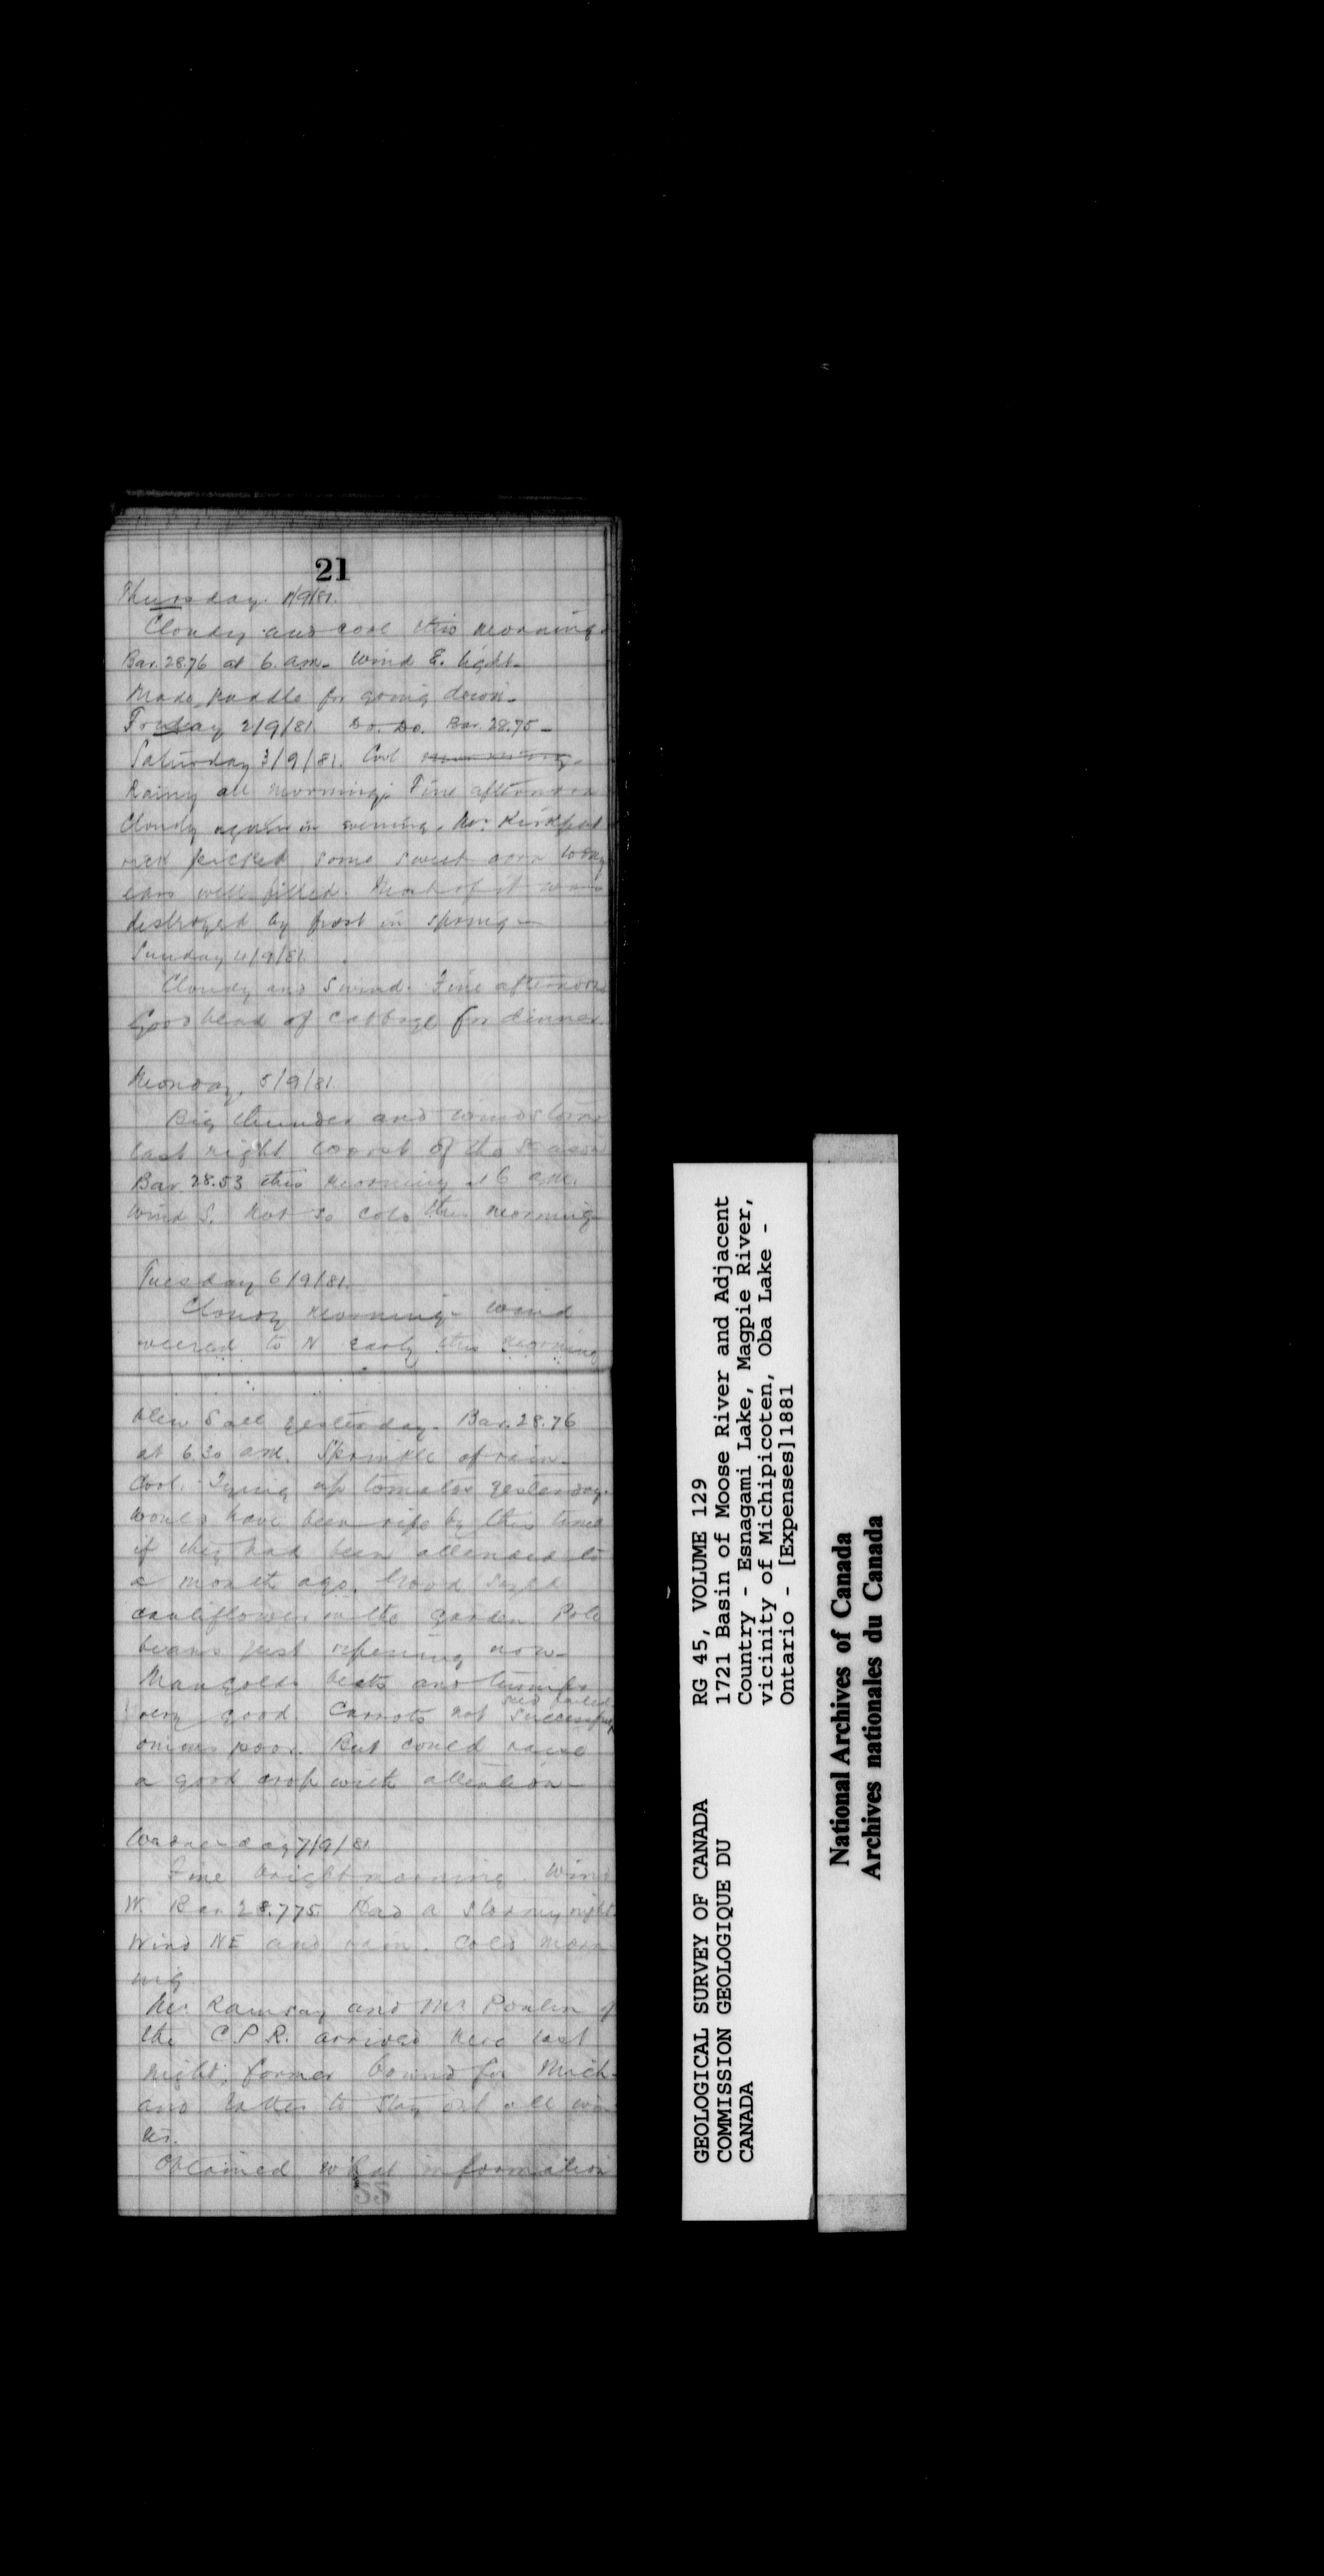 21
Thursday. 1/9/81.
Cloudy and cool this morning.
Bar. 28.76 at 6. a.m. Wind E. light.
Made paddle for going down.
Friday 2/9/81. Do. Do. Bar. 28.75
Saturday 3/9/81. Cool
Rainy all morning; Fine afternoon
Cloudy again in evening. Mr. Kirkpat
rick picked some sweet corn today
ears well filled. Most of it was
destroyed by frost in spring
Sunday 4/9/81.
Cloudy and S wind. Fine afternoon
Good head of cabbage for dinner.
Monday, 5/9/81.
Big thunder and windstorm
last night worst of the season
Bar. 28.53 this morning at 6 a.m.
Wind S. Not so cold this morning
Tuesday 6/9/81.
Cloudy morning. Wind
veered to N early this morning
blew S all yesterday. Bar. 28.76
at 6.30 a.m. Sprinkle of rain.
Cool. Tying up tomatos yesterday.
Would have been ripe by this time
if they had been attended to
a month ago. Good sized
cauliflower in the garden Pole
beans just ripening now.
Mangolds beets and turnips
seed failed
very good. Carrots not successful
onions poor. But could raise
a good crop with attention
Wednesday 7/9/81
Fine bright morning. Wind
W. Bar. 28.775. Had a stormy night
Wind NE and rain. Cold morn
ing.
Mr. Ramsay and Mr Poulin of
the C.P.R. arrived here last
night; former bound for Mich.
and latter to stay out all win
ter.
Obtained what information
GEOLOGICAL SURVEY OF CANADA
COMMISSION GEOLOGIQUE DU
CANADA
RG 45, VOLUME 129
1721 Basin of Moose River and Adjacent
Country - Esnagami Lake, Magpie River,
vicinity of Michipicoten, Oba Lake -
Ontario - [Expenses]1881
National Archives of Canada
Archives nationales du Canada